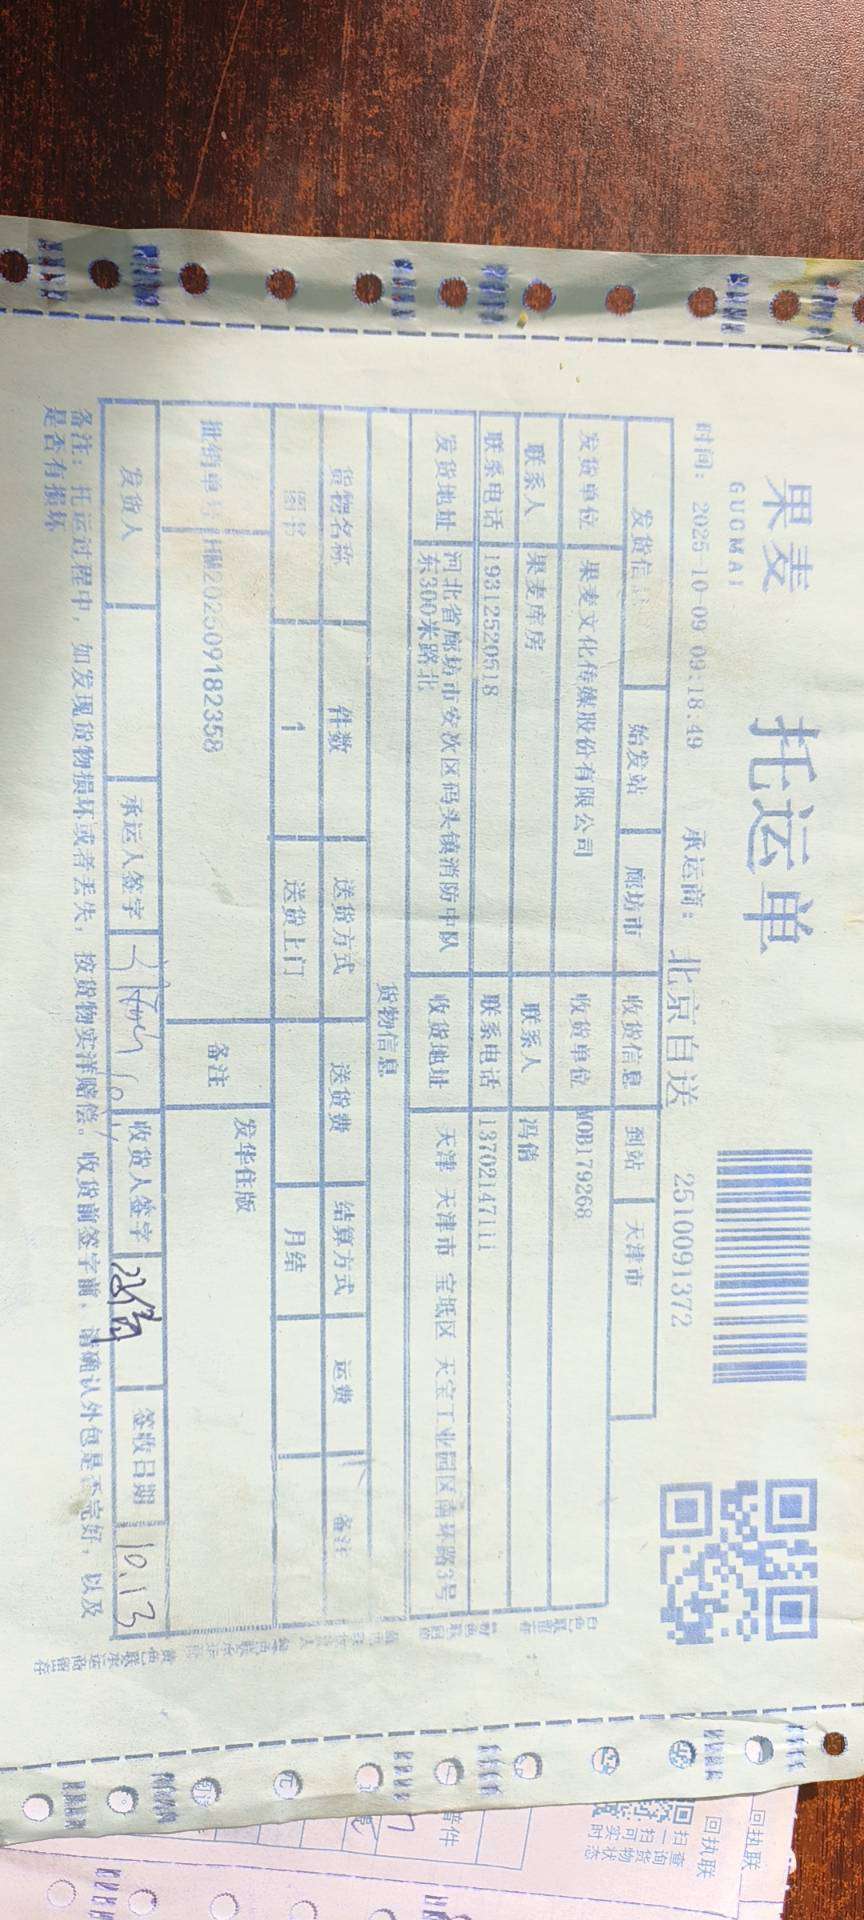 果麦
GUOMAI
托运单
时间: 2025-10-09 09:18:49 承运商: 北京自送 2510091372
始发站 廊坊市 收货信息 到站 天津市
发货单位 果麦文化传媒股份有限公司 收货单位 MOB179268
联系人 果麦库房 联系人
联系电话 19312520518 联系电话 13702147111
发货地址 河北省廊坊市安次区码头镇消防中队
东300米路北
收货地址 天津 天津市 宝坻区 天宝工业园区南环路3号
货物信息
货物名称 件数 送货方式 送货费 结算方式 运费 备注
图书 1 送货上门 月结
批销单号 HM202509182358 备注 发华住版
发货人 承运人签字 收货人签字 签收日期 10.13
备注: 托运过程中, 如发现货物损坏或者丢失, 按货物实洋赔偿。收货前签字前, 请确认外包是否完好, 以及
是否有损坏
回执联
回执联
扫一扫可实时
查询货物状态